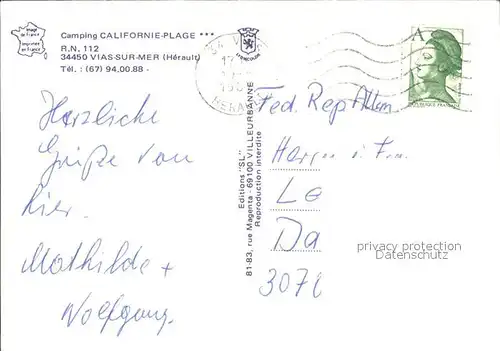 Image
de France
Imprimée
en France
Camping CALIFORNIE-PLAGE ***
R.N. 112
34450 VIAS-SUR-MER (Hérault)
Tél. : (67) 94.00.88 -
Herzliche
Grüße von
hier.
Mathilde +
Wolfgang.
Editions "SL"
81-83, rue Magenta - 69100 VILLEURBANNE
Reproduction interdite
A
Fed. Rep Allem
Herrn u. Frau
Le
Da
307
privacy protection
Datenschutz